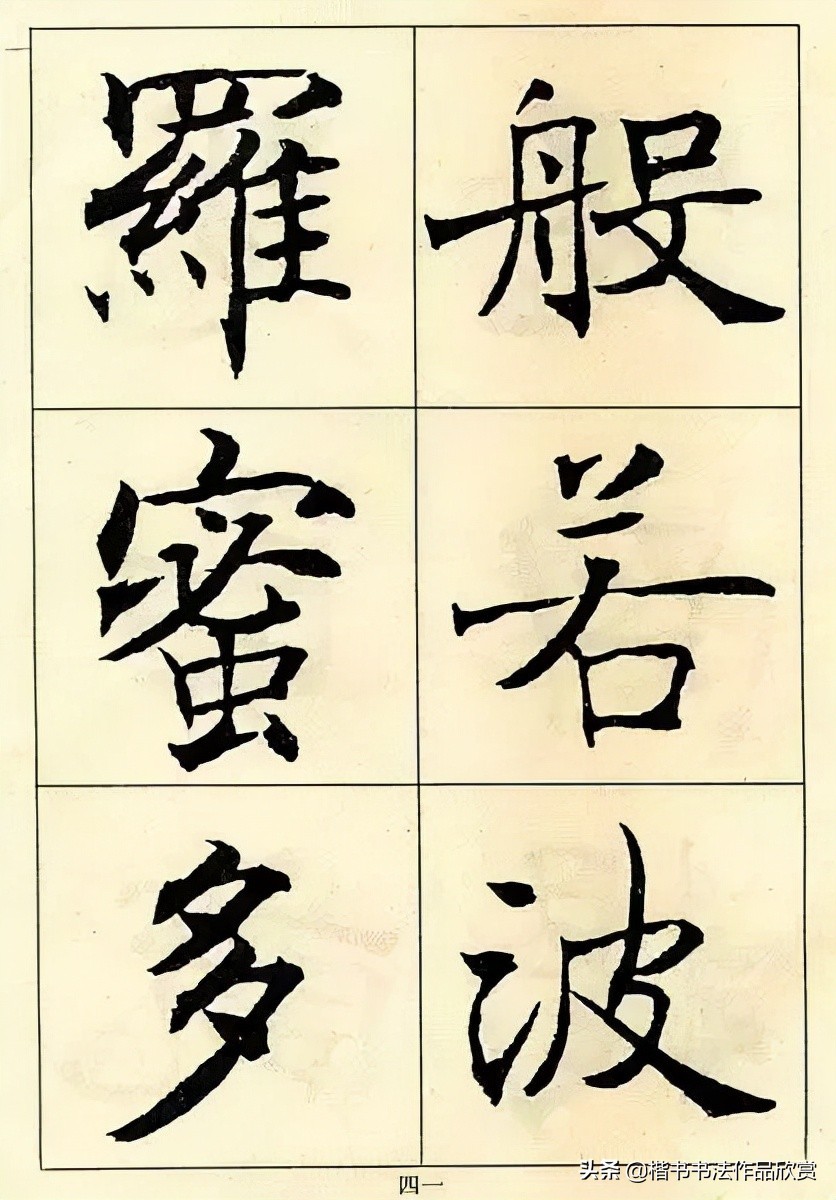 般若波
羅蜜多
四一
头条 @楷书书法作品欣赏